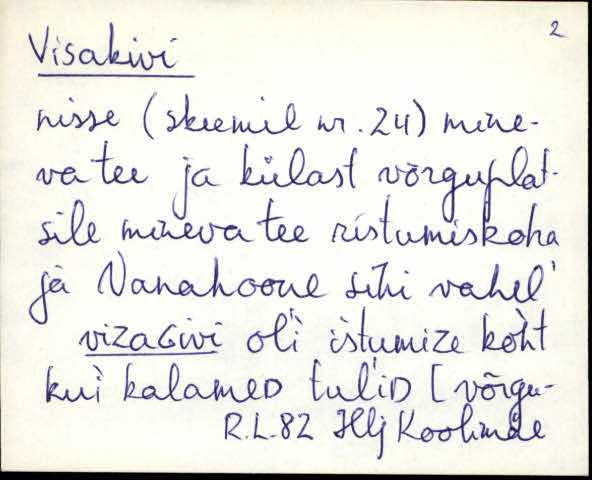 2
Visakivi
nisse (skeemil nr. 24) mine-
va tee ja külast võrguplat-
sile mineva tee ristumiskoha
ja Vanahoone sihi vahel'
vizaGivi ol'i istumize koht
kui kalameD tul'iD [võrgu-
R.L.82 Hlj Koolmäe